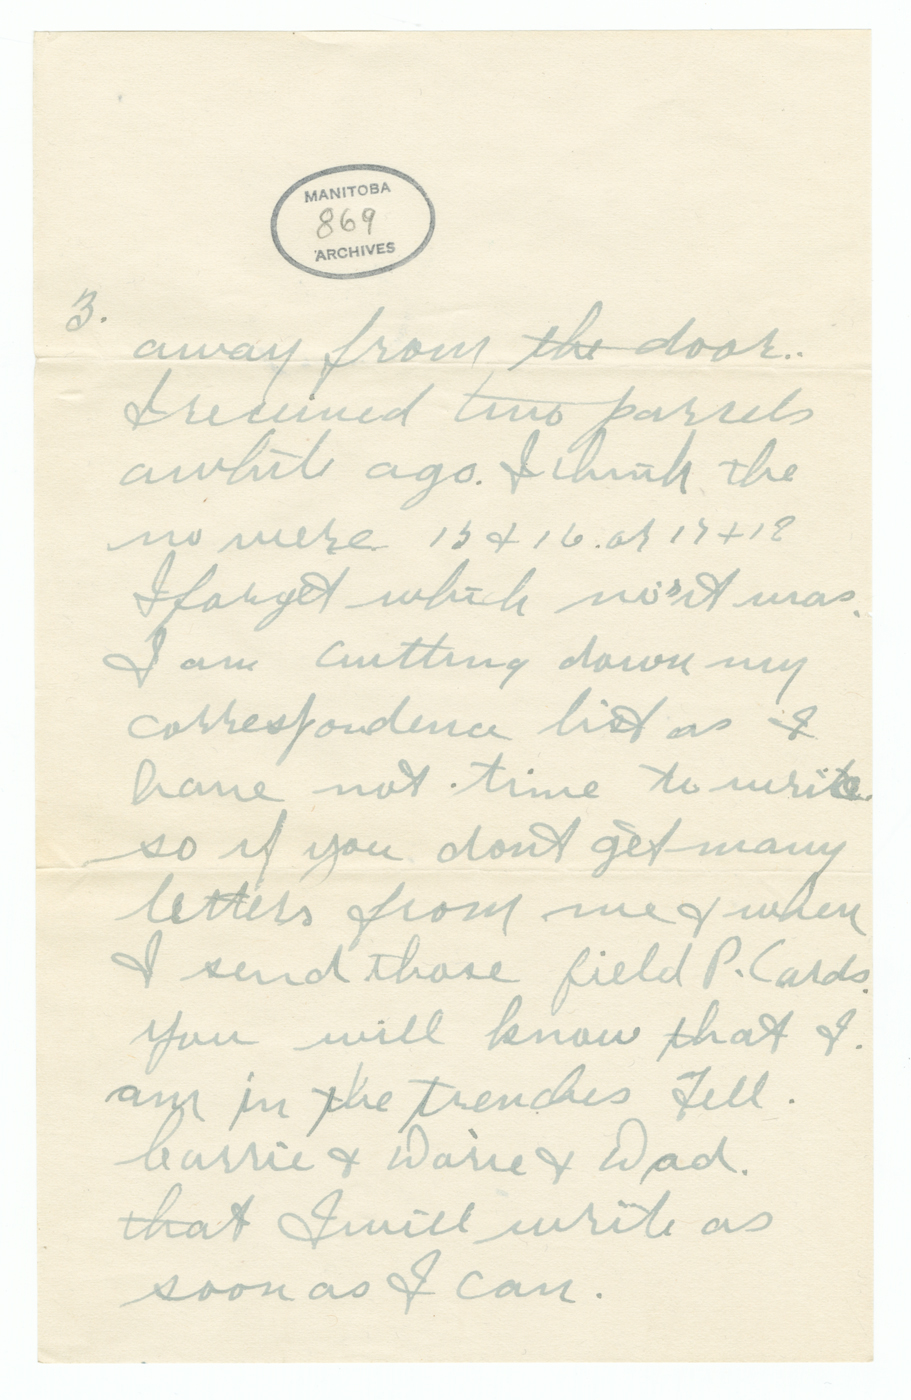 MANITOBA
869
ARCHIVES
3.
away from the door..
I recieved two parcels
awhile ago. I think the
no were 15 & 16. or 17 + 18
I forget which no's it was.
I am cutting down my
correspondence list as I
have not time to write.
so if you dont get many
letters from me & when
I send those field P. Cards.
you will know that I.
am in the trenches Tell.
Carrie & & Dad.
that I will write as
soon as I can.